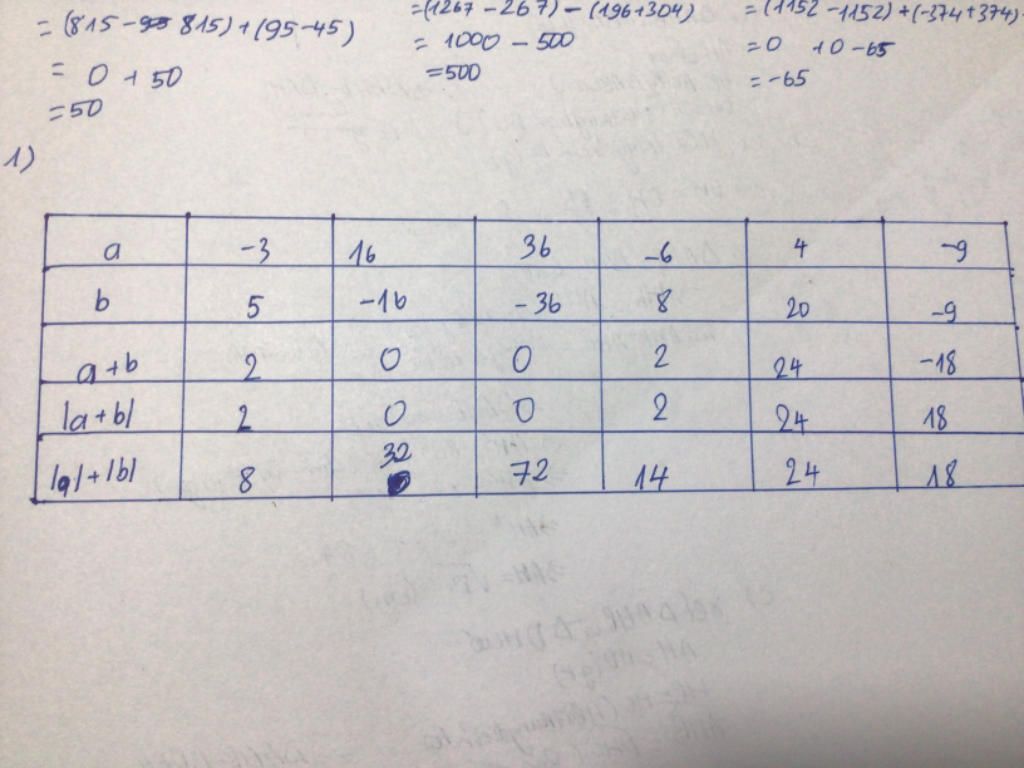 = (815 - 815) + (95 - 45)
= 0 + 50
= 50
= (1267 - 267) - (196 + 304)
= 1000 - 500
= 500
= (1152 - 1152) + (-374 + 374)
= 0 + 0 - 65
= -65
1)
a -3 16 36 -6 4 -9
b 5 -16 -36 8 20 -9
a + b 2 0 0 2 24 -18
|a + b| 2 0 0 2 24 18
|a| + |b| 8 32 72 14 24 18